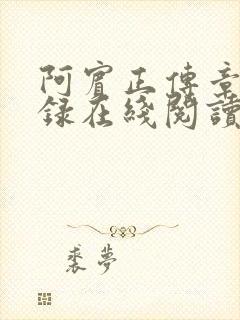 阿賓正傳章
錄在綫閱讀
裘夢